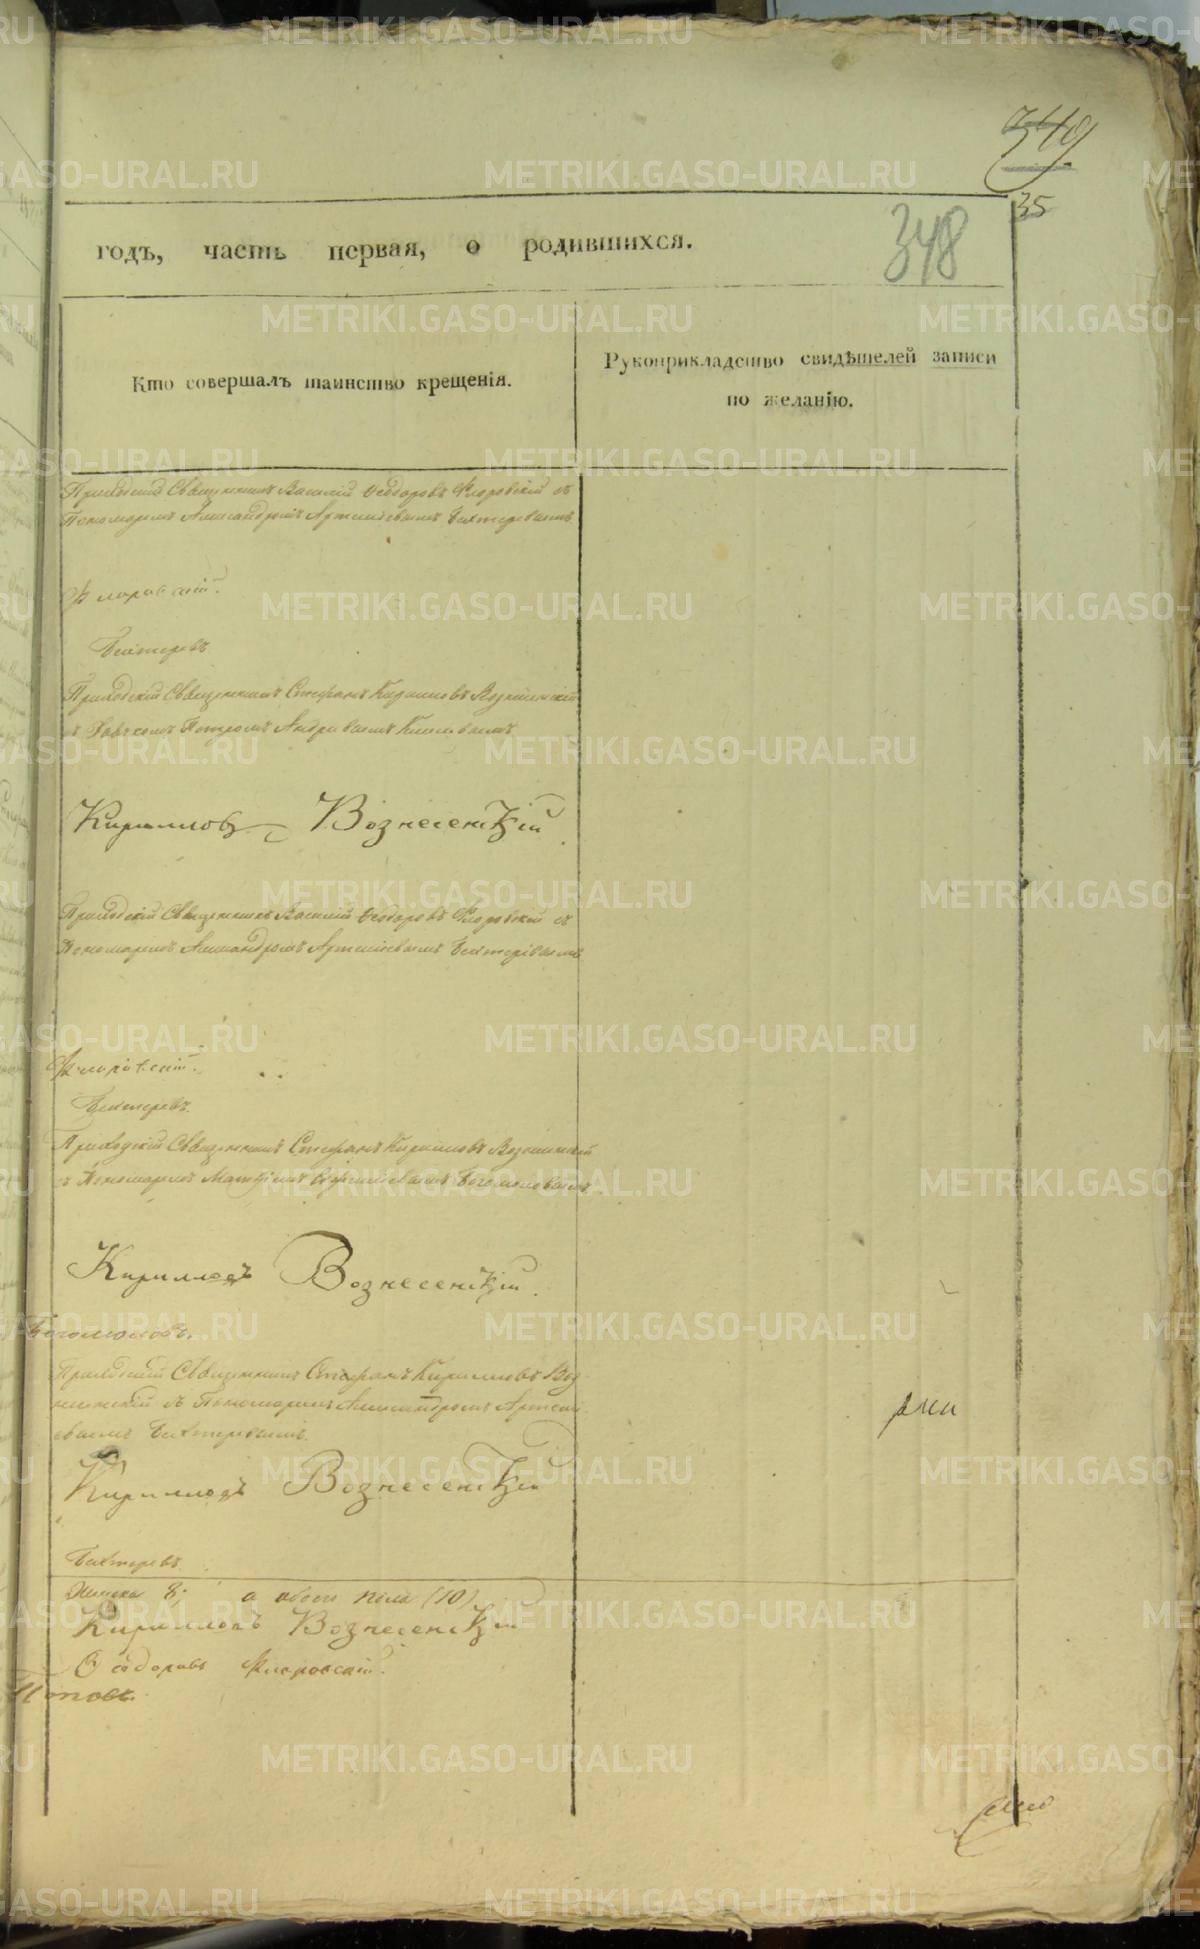 349
35
348
годъ, часть первая, о родившихся.
Кто совершалъ таинство крещенія.
Рукоприкладство свидѣтелей записи
по желанію.
Приходскій Священникъ Василій Ѳеодоровъ Флоровскій съ
Пономаремъ Александромъ Артеміевымъ Бехтеревымъ
Флоровскій.
Бехтеревъ
Приходскій Священникъ Стефанъ Кирилловъ Вознесенскій
съ Петромъ Андреевымъ
Кирилловъ Вознесенскій.
Приходскій Священникъ Василій Ѳеодоровъ Флоровскій съ
Пономаремъ Александромъ Артеміевымъ Бехтеревымъ
Флоровскій.
Бехтеревъ.
Приходскій Священникъ Стефанъ Кирилловъ Вознесенскій
съ Пономаремъ Богомоловымъ
Кирилловъ Вознесенскій.
Богомоловъ.
Приходскій Священникъ Стефанъ Кирилловъ Воз-
несенскій съ Пономаремъ Александромъ Артемі-
евымъ Бехтеревымъ.
Кирилловъ Вознесенскій
Бехтеревъ.
Женска 8; а обоего пола (10)
Кирилловъ Вознесенскій
Ѳеодоровъ Флоровскій.
Поповъ.
METRIKI.GASO-URAL.RU